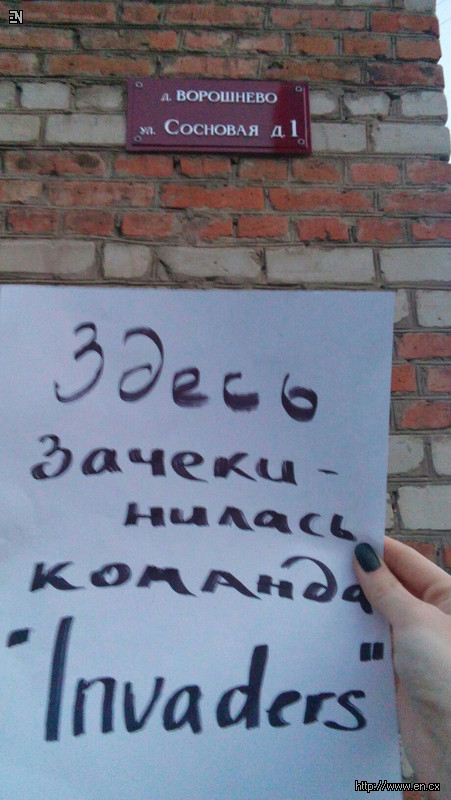 EN
д. ВОРОШНЕВО
ул. СОСНОВАЯ д.1
Здесь
зачеки-
нилась
команда
"Invaders"
http://www.en.cx